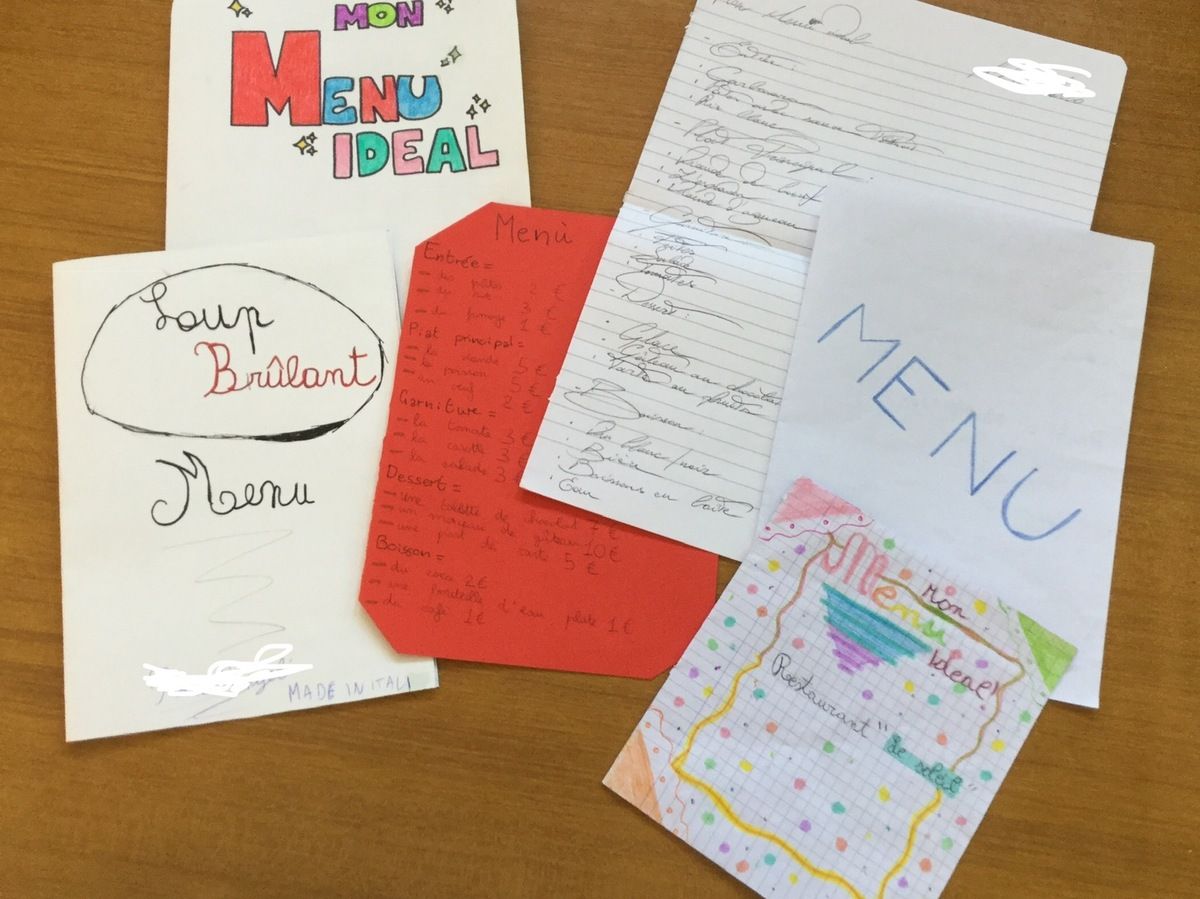 MON
MENU
IDEAL
Loup
Brûlant
Menu
MADE IN ITALI
Menù
Entrée=
- les pâtes 2 €
- du 3 €
- du fromage 1 €
Plat principal=
- la viande 5 €
- le poisson 5 €
- un œuf 2 €
Garniture=
- la tomate 3 €
- la carotte 3 €
- la salade 3 €
Dessert=
- une de chocolat 7 €
- un morceau de gâteau 10 €
- une part de 5 €
Boisson=
- du coca 2 €
- une bouteille d'eau plate 1 €
- du café 1 €
Menu
· Plat Principal:
· Viande de bœuf
· Salade
· Tomates
- Dessert:
· Glace
· Gâteau au chocolat
· Tarte au
- Boisson:
· Vin blanc/noir
· Bière
· Boissons en boîte
· Eau
MENU
Mon
Menu
Ideale
Restaurant "Le soleil"